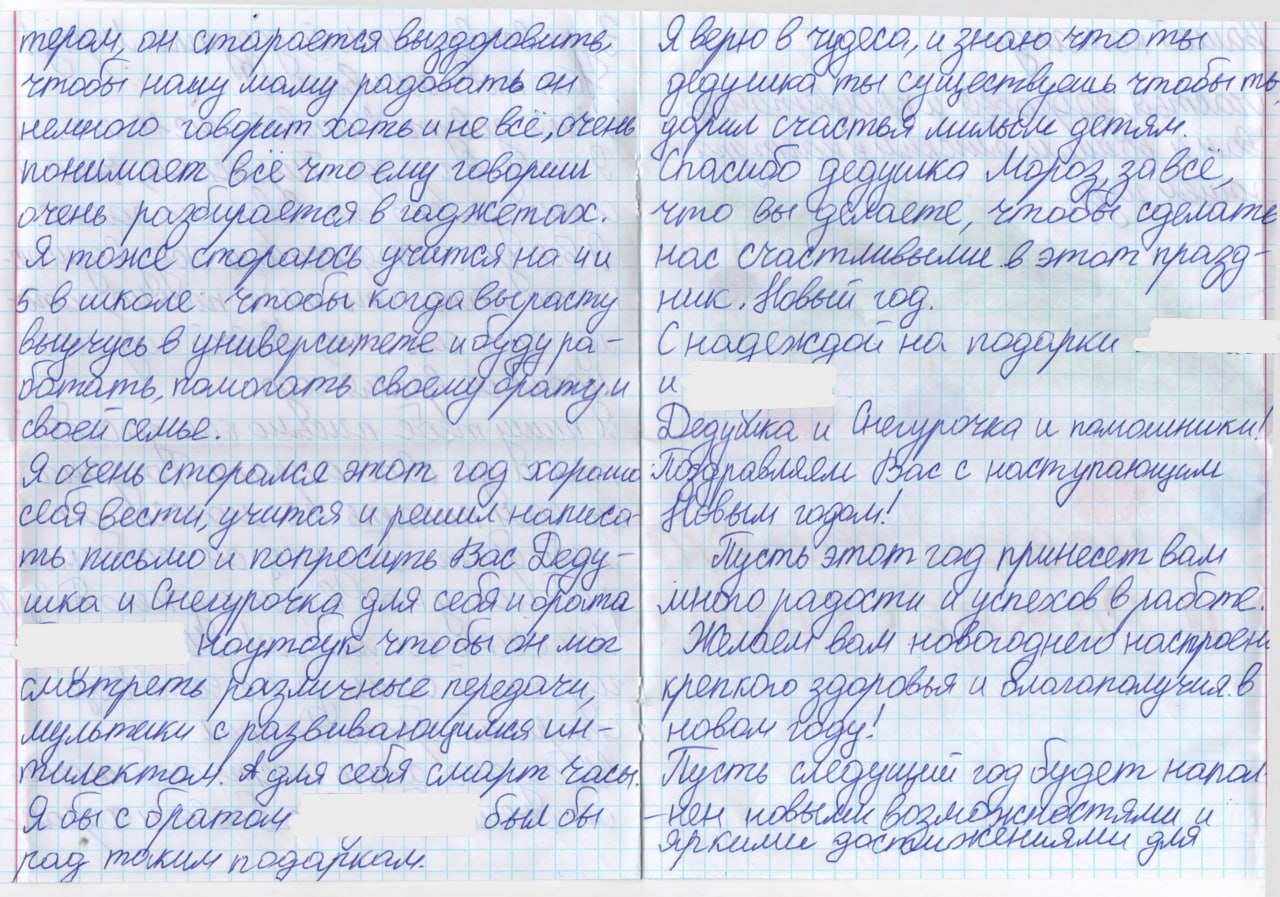 терам, он старается выздоровить
чтобы нашу маму радовать он
немного говорит хоть и не всё, очень
понимает всё что ему говорим
очень разбирается в гаджетах.
Я тоже стораюсь учится на 4 и
5 в школе чтобы когда вырасту
выучусь в университете и буду ра-
ботать, помогать своему брату и
своей семье.
Я очень сторался этот год хорошо
себя вести, учится и решил написа-
ть письмо и попросить Вас Деду-
шка и Снегурочка для себя и брата
ноутбук чтобы он мог
смотреть различные передачи,
мультики с развивающимся ин-
тилектом. А для себя смарт часы.
Я бы с братом был бы
рад таким подаркам.
Я верю в чудеса, и знаю что ты
дедушка ты существуешь чтобы ты
дарил счастья милым детям.
Спасибо дедушка Мороз, за всё,
что вы делаете, чтобы сделать
нас счастливыми в этот празд-
ник. Новый год.
С надеждой на подарки
и
Дедушка и Снегурочка и помошники!
Поздравляем Вас с наступающим
Новым годом!
Пусть этот год принесет вам
много радости и успехов в работе.
Желаем вам новогоднего настроени
крепкого здоровья и благаполучия в
новом году!
Пусть следущий год будет напол-
-нен новыми возможностями и
яркими достижениями для